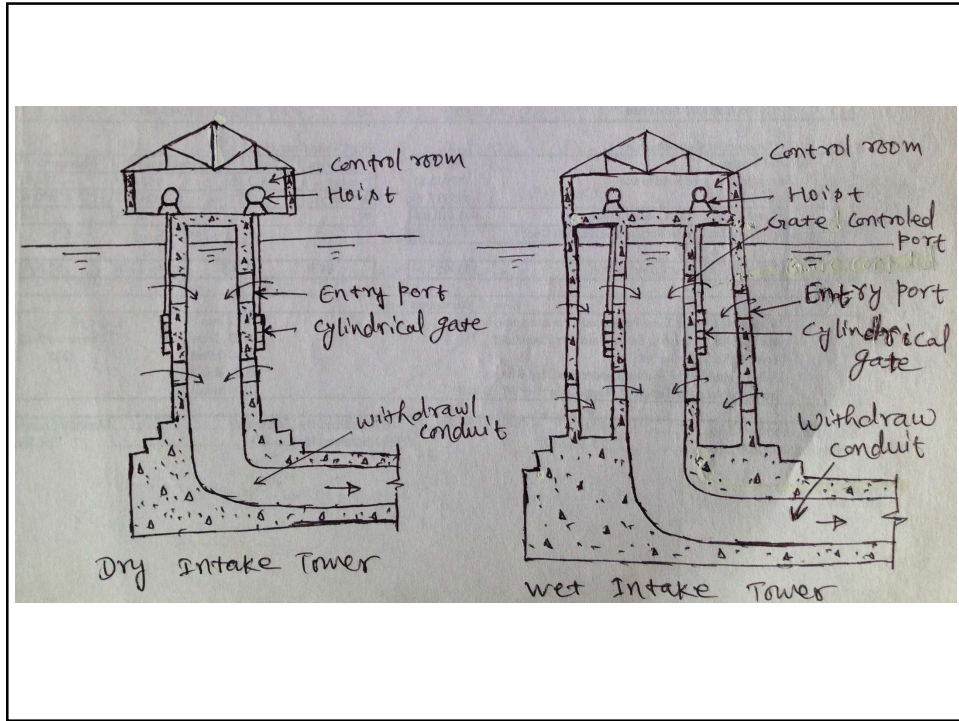 Control room
Hoist
Entry port
Cylindrical gate
withdrawl
conduit
Dry Intake Tower
Control room
Hoist
Gate Controled
port
Entry port
Cylindrical
gate
Withdraw
conduit
Wet Intake Tower